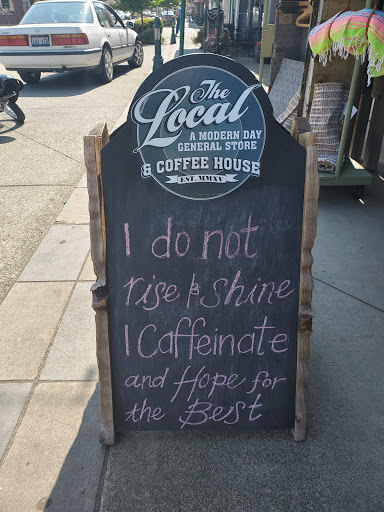 The
Local
A MODERN DAY
GENERAL STORE
& COFFEE HOUSE
EST. MMXV
I do not
rise & shine
I Caffeinate
and Hope for
the Best